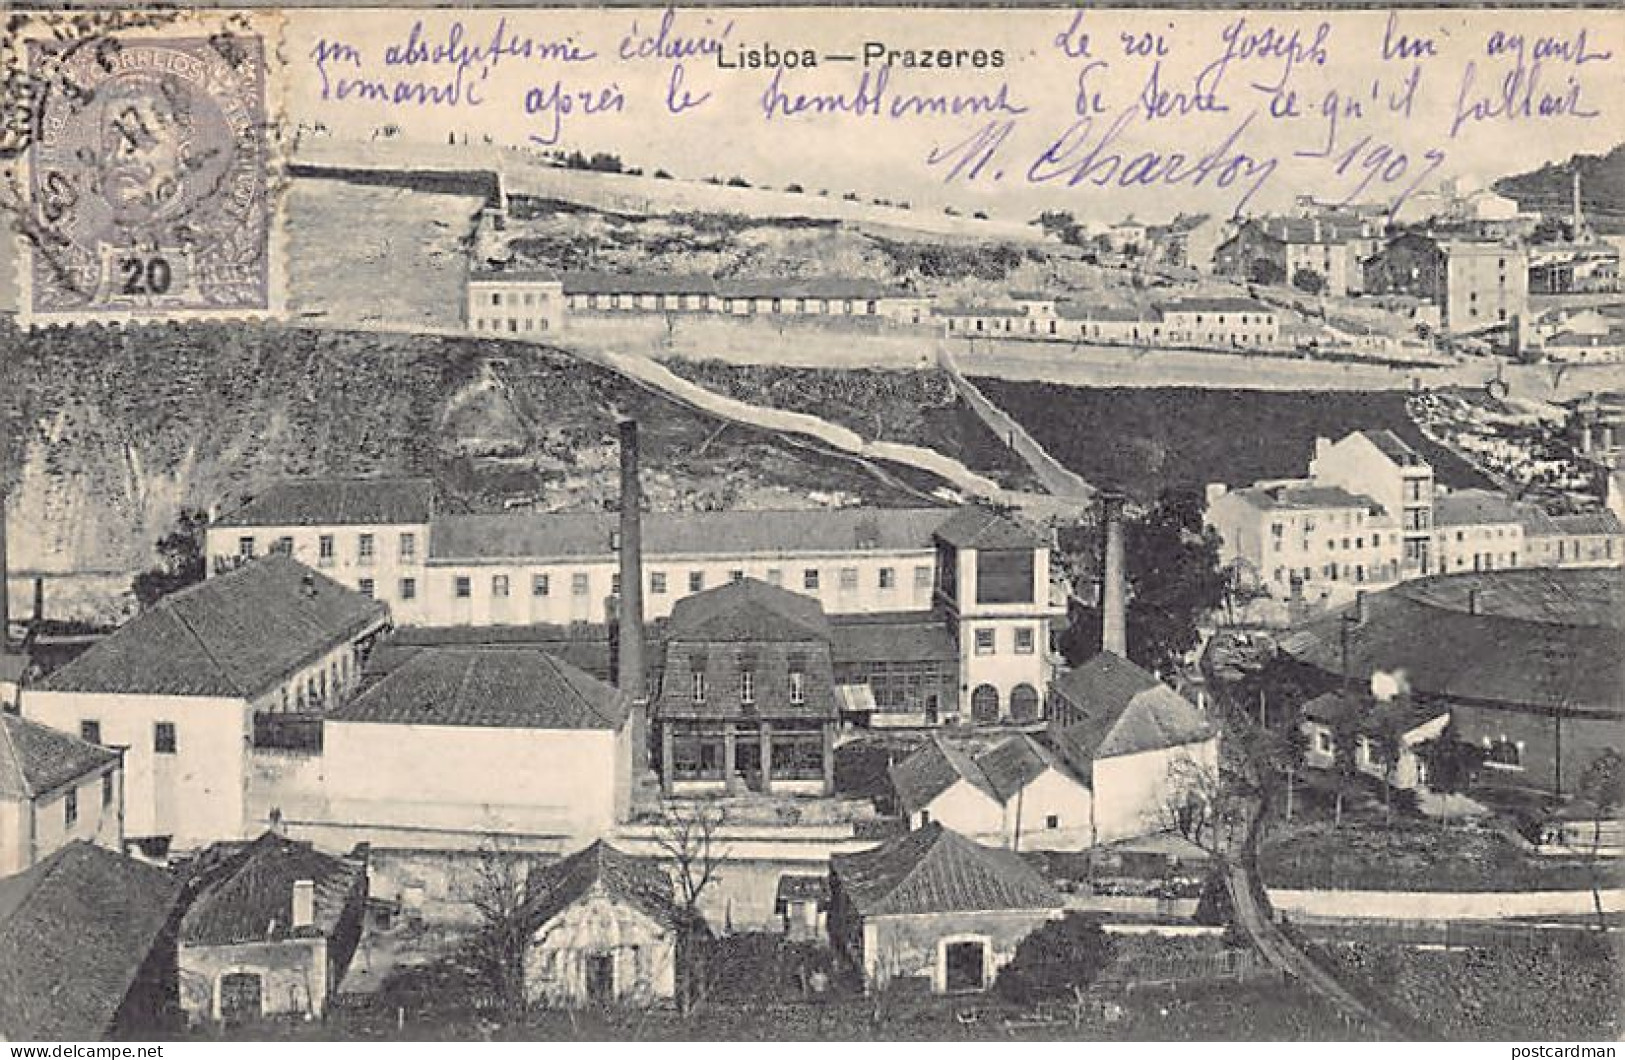 un absolutisme éclairé Lisboa — Prazeres Le roi Joseph lui ayant
demandé après le tremblement de terre ce qu'il fallait
M. Chartoy - 1907
CORREIOS
20
postcardman